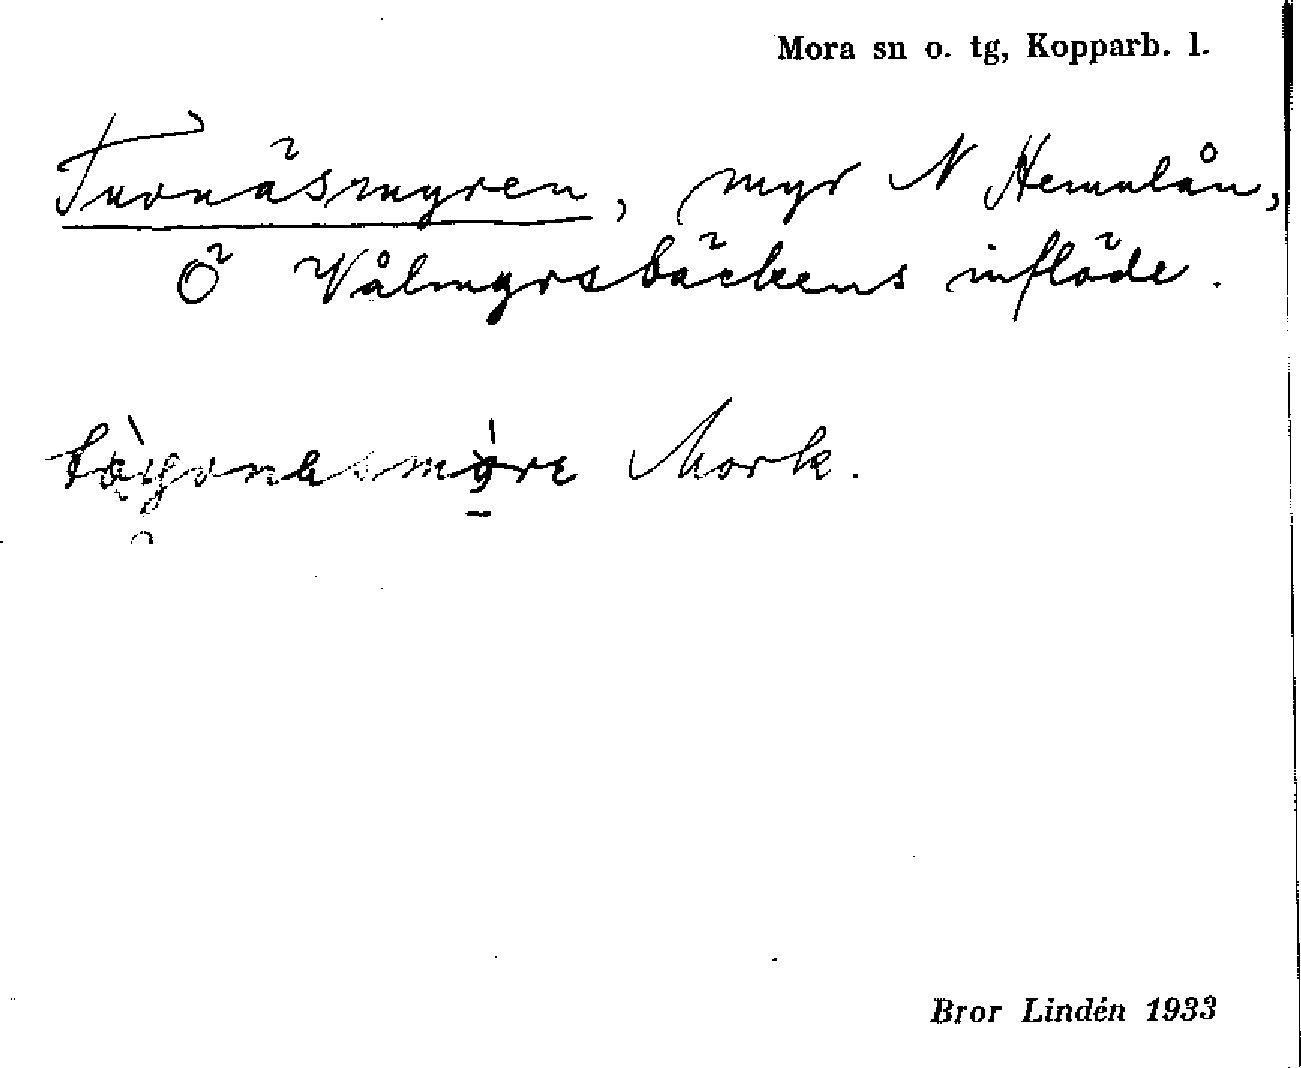 Mora sn o. tg, Kopparb. l.
Turnäsmyren, myr N Hemulån,
Ö Vålmyrsbäckens inflöde.
Mork.
Bror Lindén 1933